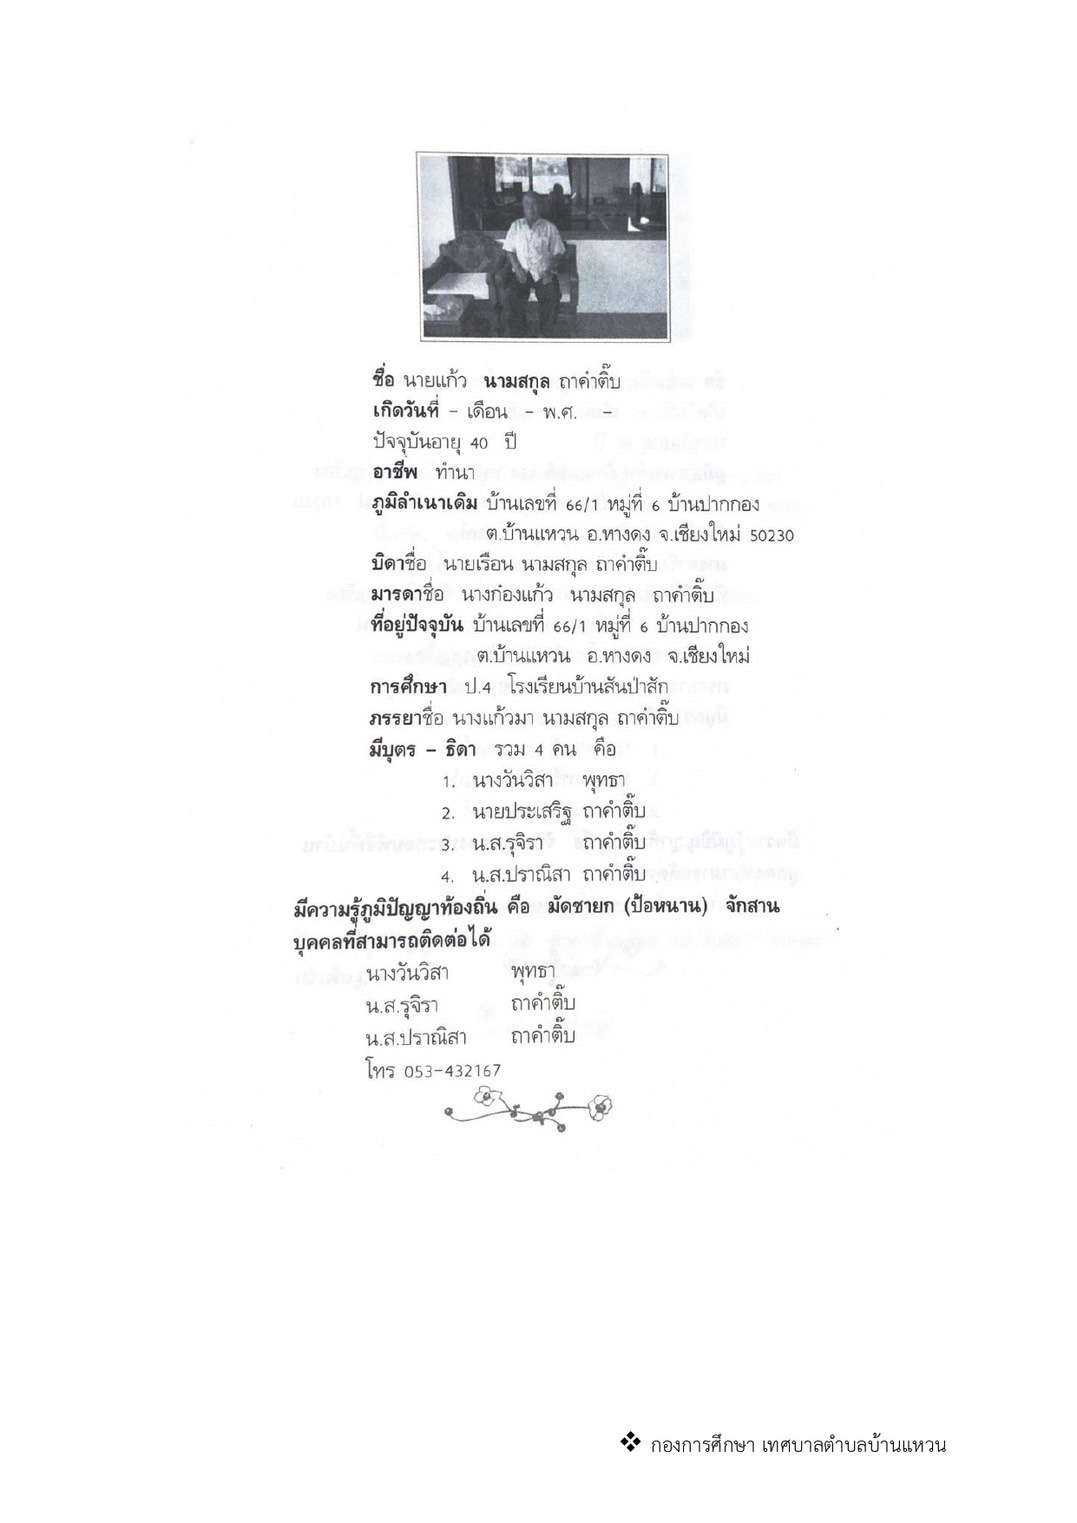 ชื่อ นายแก้ว นามสกุล ถาคำติ๊บ
เกิดวันที่ - เดือน - พ.ศ. -
ปัจจุบันอายุ 40 ปี
อาชีพ ทำนา
ภูมิลำเนาเดิม บ้านเลขที่ 66/1 หมู่ที่ 6 บ้านปากกอง
ต.บ้านแหวน อ.หางดง จ.เชียงใหม่ 50230
บิดาชื่อ นายเรือน นามสกุล ถาคำติ๊บ
มารดาชื่อ นางก๋องแก้ว นามสกุล ถาคำติ๊บ
ที่อยู่ปัจจุบัน บ้านเลขที่ 66/1 หมู่ที่ 6 บ้านปากกอง
ต.บ้านแหวน อ.หางดง จ.เชียงใหม่
การศึกษา ป.4 โรงเรียนบ้านสันป่าสัก
ภรรยาชื่อ นางแก้วมา นามสกุล ถาคำติ๊บ
มีบุตร - ธิดา รวม 4 คน คือ
1. นางวันวิสา พุทธา
2. นายประเสริฐ ถาคำติ๊บ
3. น.ส.รุจิรา ถาคำติ๊บ
4. น.ส.ปราณิสา ถาคำติ๊บ
มีความรู้ภูมิปัญญาท้องถิ่น คือ มัดชายก (ป้อหนาน) จักสาน
บุคคลที่สามารถติดต่อได้
นางวันวิสา พุทธา
น.ส.รุจิรา ถาคำติ๊บ
น.ส.ปราณิสา ถาคำติ๊บ
โทร 053-432167
❖ กองการศึกษา เทศบาลตำบลบ้านแหวน